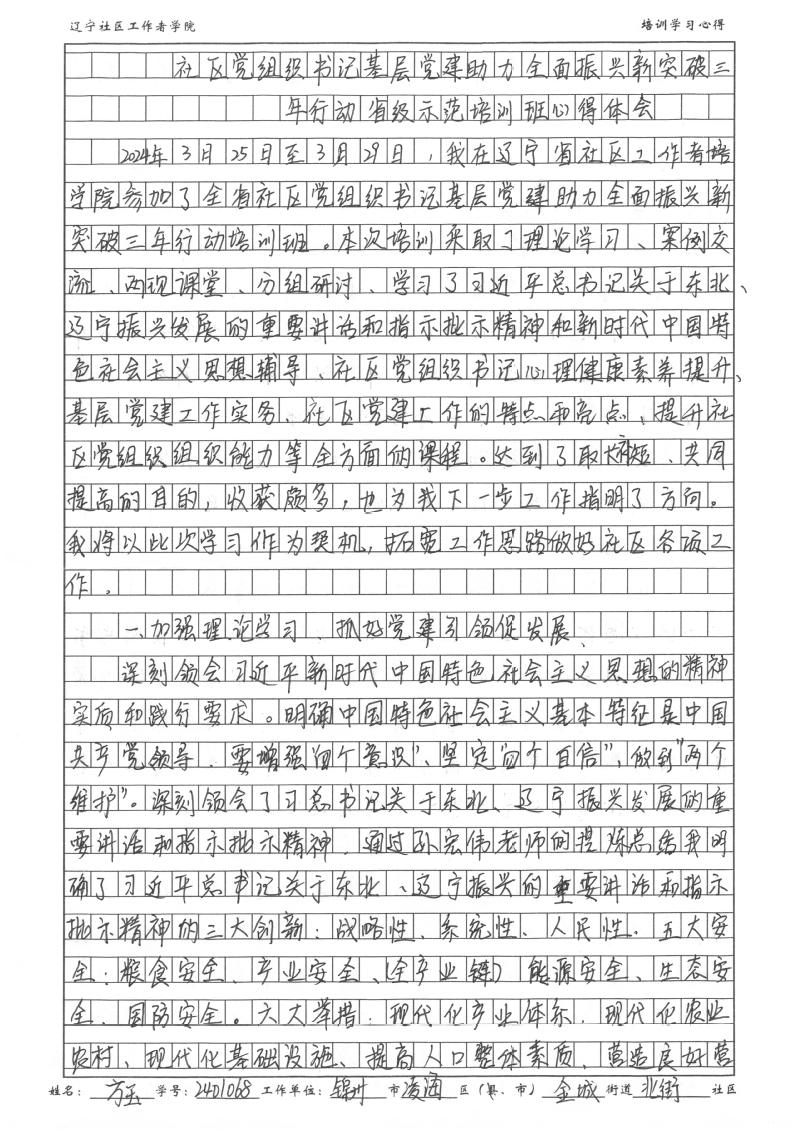 辽宁社区工作者学院 培训学习心得
社区党组织书记基层党建助力全面振兴新突破三
年行动省级示范培训班心得体会
2024年3月25日至3月29日，我在辽宁省社区工作者培
学院参加了全省社区党组织书记基层党建助力全面振兴新
突破三年行动培训班。本次培训采取了理论学习、案例交
流、两现课堂、分组研讨、学习了习近平总书记关于东北、
辽宁振兴发展的重要讲话和指示批示精神和新时代中国特
色社会主义思想辅导、社区党组织书记心理健康素养提升、
基层党建工作实务、社区党建工作的特点和亮点、提升社
区党组织组织能力等全方面的课程。达到了取长补短、共同
提高的目的，收获颇多，也为我下一步工作指明了方向。
我将以此次学习作为契机，拓宽工作思路做好社区各项工
作。
一、加强理论学习、抓好党建引领促发展、
深刻领会习近平新时代中国特色社会主义思想的精神
实质和践行要求。明确中国特色社会主义基本特征是中国
共产党领导，要增强“四个意识”、坚定“四个自信”，做到“两个
维护”。深刻领会了习总书记关于东北、辽宁振兴发展的重
要讲话和指示批示精神，通过孙宏伟老师的提炼总结我明
确了习近平总书记关于东北、辽宁振兴的重要讲话和指示
批示精神的三大创新：战略性、系统性、人民性．五大安
全：粮食安全、产业安全、（全产业链）能源安全、生态安
全、国防安全。六大举措：现代化产业体系、现代化农业
农村、现代化基础设施、提高人口整体素质、营造良好营
姓名：方玉 学号：2401068 工作单位：锦州 市 凌海 区（县、市） 金城 街道 北街 社区